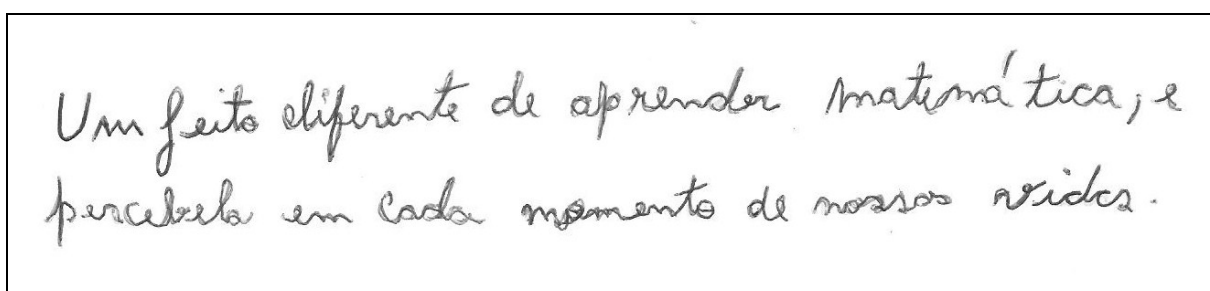 Um feito diferente de aprender matemática, e
percebela em cada momento de nossas vidas.